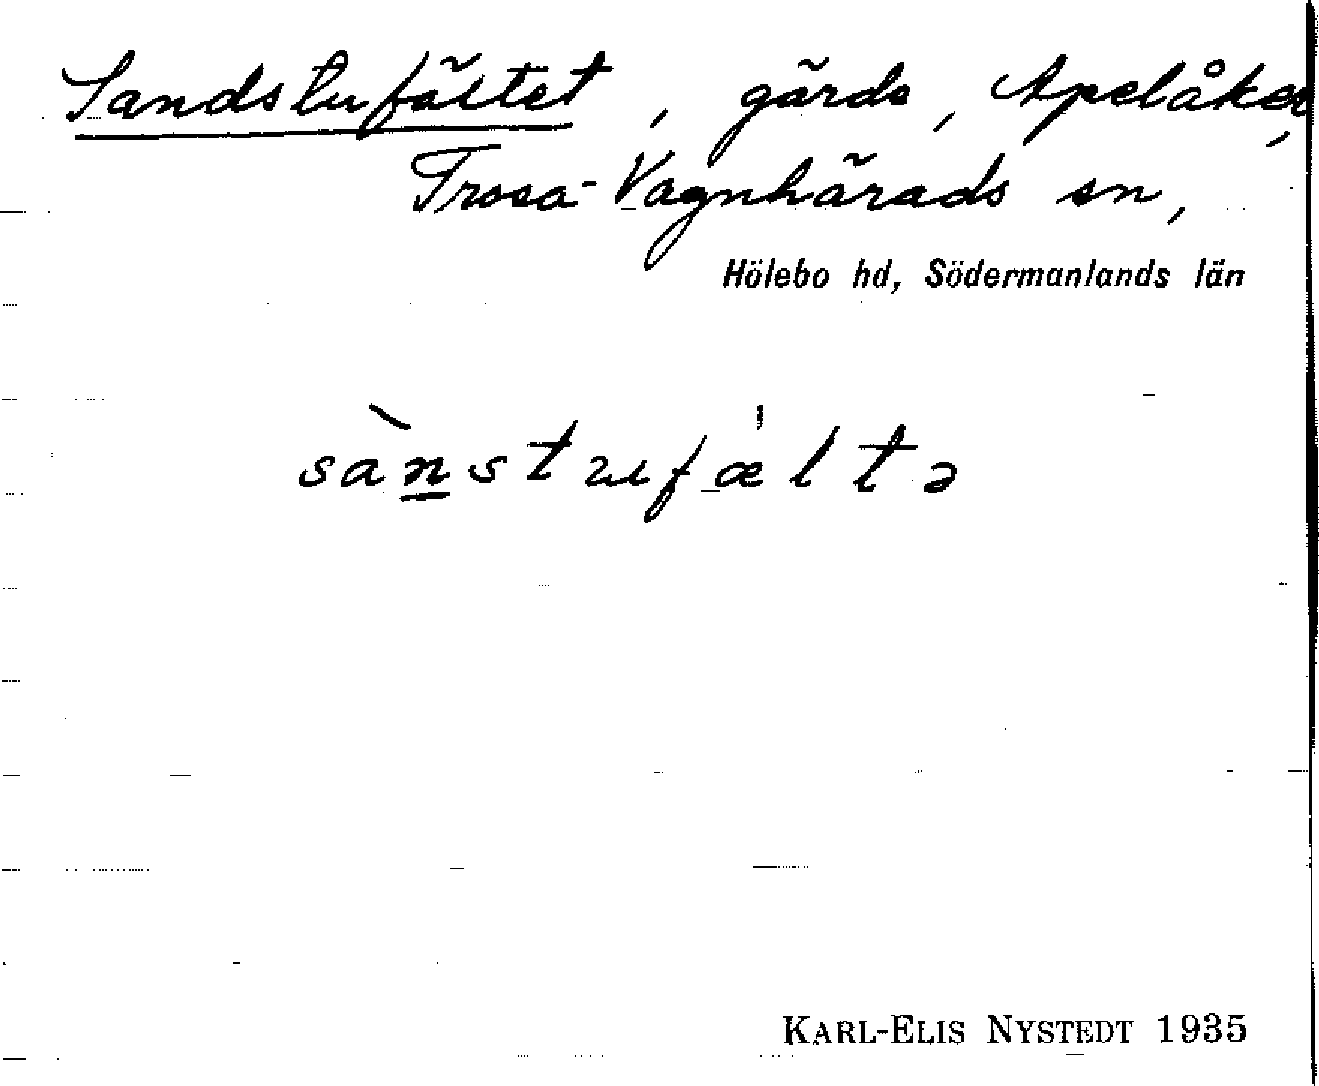 Sandstufältet, gärde, Apelåker,
Trosa-Vagnhärads sn,
Hölebo hd, Södermanlands län
sàn̲stufǽltə
KARL-ELIS NYSTEDT 1935